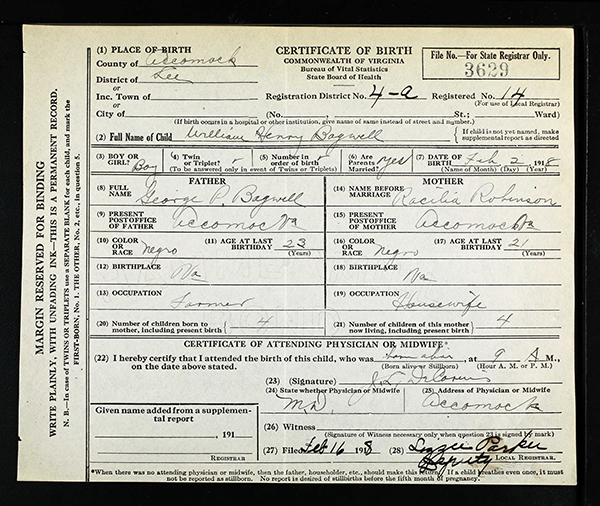 MARGIN RESERVED FOR BINDING
WRITE PLAINLY, WITH UNFADING INK—THIS IS A PERMANENT RECORD.
N. B.—In case of TWINS OR TRIPLETS use a SEPARATE BLANK for each child, and mark the
FIRST-BORN, No. 1. THE OTHER, No. 2, etc., in question 5.
(1) PLACE OF BIRTH
County of Accomack
District of Lee
or
Inc. Town of
or
City of
CERTIFICATE OF BIRTH
COMMONWEALTH OF VIRGINIA
Bureau of Vital Statistics
State Board of Health
File No.—For State Registrar Only.
3629
Registration District No. 4-a Registered No. 14
(For use of Local Registrar)
(No. , St.; Ward)
(If birth occurs in a hospital or other institution, give name of same instead of street and number.)
(2) Full Name of Child William Henry Bagwell
If child is not yet named, make supplemental report as directed
(3) BOY OR GIRL? Boy
(4) Twin or Triplet?
(5) Number in order of birth
(To be answered only in event of Twins or Triplets)
(6) Are Parents Married? yes
(7) DATE OF BIRTH Feb 2 1918
(Name of Month) (Day) (Year)
FATHER
(8) FULL NAME George P. Bagwell
(9) PRESENT POSTOFFICE OF FATHER Accomac Va
(10) COLOR OR RACE Negro
(11) AGE AT LAST BIRTHDAY 23 (Years)
(12) BIRTHPLACE Va
(13) OCCUPATION Farmer
MOTHER
(14) NAME BEFORE MARRIAGE Robinson
(15) PRESENT POSTOFFICE OF MOTHER Accomac Va
(16) COLOR OR RACE Negro
(17) AGE AT LAST BIRTHDAY 21 (Years)
(18) BIRTHPLACE Va
(19) OCCUPATION Housewife
(20) Number of children born to mother, including present birth 4
(21) Number of children of this mother now living, including present birth 4
CERTIFICATE OF ATTENDING PHYSICIAN OR MIDWIFE*
(22) I hereby certify that I attended the birth of this child, who was born alive, at 9 A M.,
on the date above stated. (Born alive or Stillborn) (Hour A. M. or P. M.)
(23) (Signature)
(24) State whether Physician or Midwife M.D.
(25) Address of Physician or Midwife Accomack
Given name added from a supplemental report
, 191
REGISTRAR
(26) Witness
(Signature of Witness necessary only when question 23 is signed by mark)
(27) Filed Feb 16 1918 (28) Lizzie Parker
Deputy LOCAL REGISTRAR.
*When there was no attending physician or midwife, then the father, householder, etc., should make this return. If a child breathes even once, it must
not be reported as stillborn. No report is desired of stillbirths before the fifth month of pregnancy.